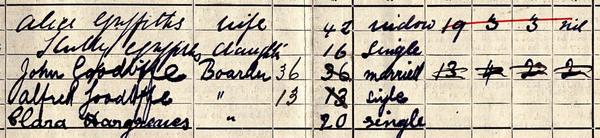 Alice Griffiths wife 42 widow 19 3 3 nil
Griffiths daught 16 Single
John Goodliffe Boarder 36 36 married 13 4 2 2
Alfred Goodliffe " 13 13 single
Clara Hargreaves " 20 single